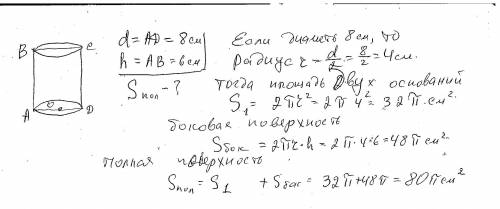 B C
A O D
d = AD = 8 см
h = AB = 6 см
Sпол - ?
Если диаметр 8 см, то
Радиус r = d/2 = 8/2 = 4 см.
Тогда площадь двух оснований
S₁ = 2πr² = 2π4² = 32π см².
боковая поверхность
Sбок = 2πr·h = 2π·4·6 = 48π см²
полная поверхность
Sпол = S₁ + Sбок = 32π + 48π = 80π см²